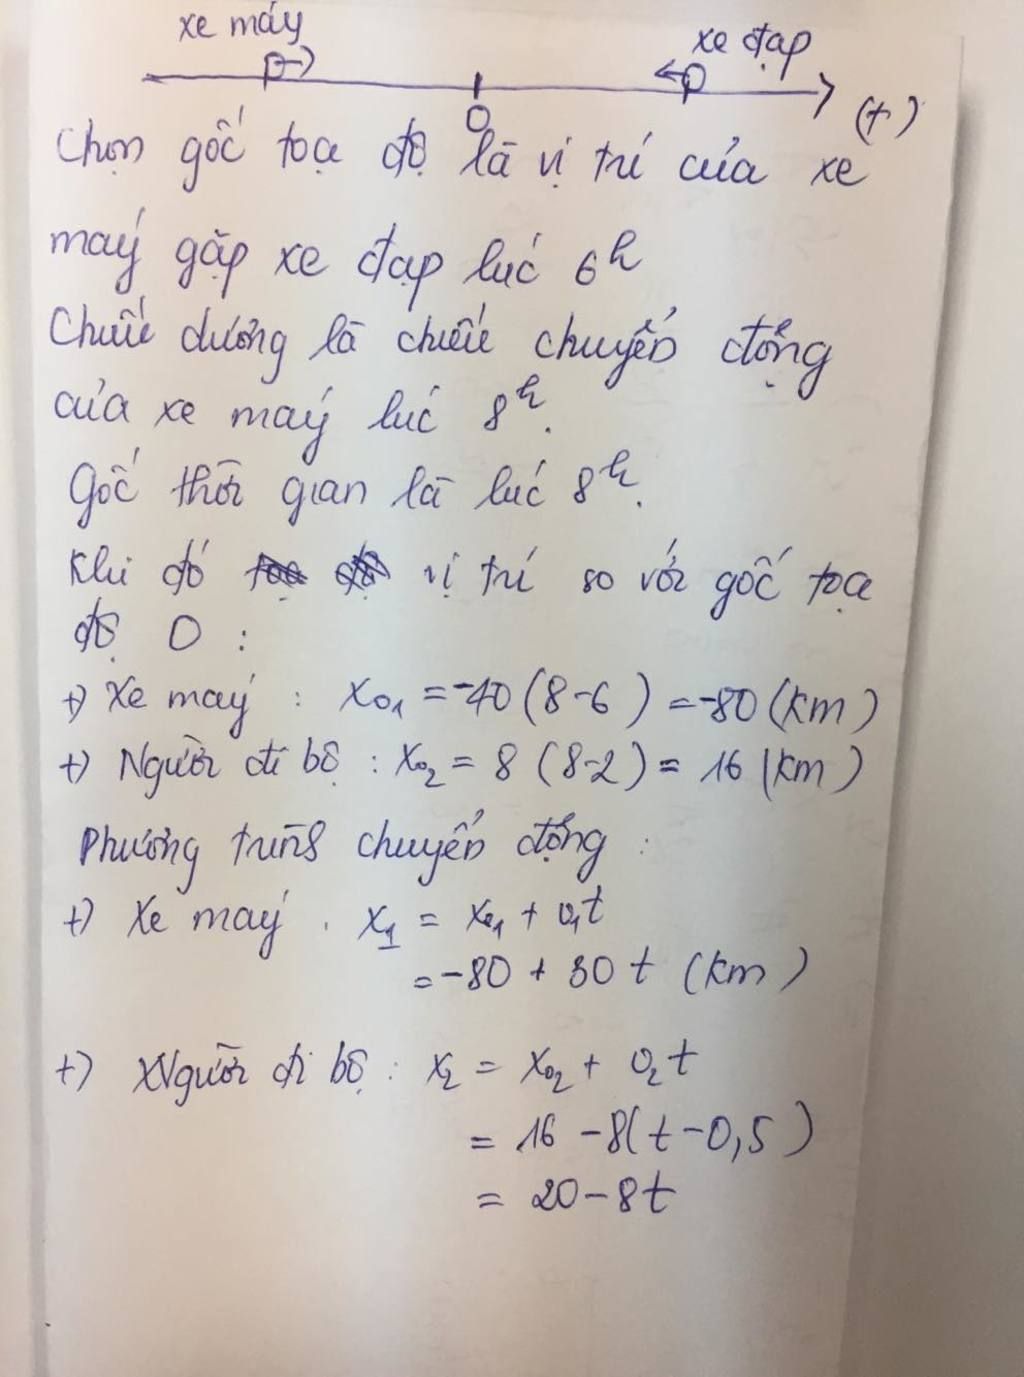 xe máy
xe đạp
O
(+)
Chọn gốc toạ độ là vị trí của xe
máy gặp xe đạp lúc 6h
Chiều dương là chiều chuyển động
của xe máy lúc 8h.
Gốc thời gian là lúc 8h.
Khi đó vị trí so với gốc toạ
độ O :
+) Xe máy : x01 = -40 (8-6) = -80 (km)
+) Người đi bộ : x02 = 8 (8-2) = 16 (km)
Phương trình chuyển động :
+) Xe máy . x1 = x01 + v1t
= -80 + 30 t (km)
+) Người đi bộ : x2 = x02 + v2t
= 16 - 8(t-0,5)
= 20 - 8t